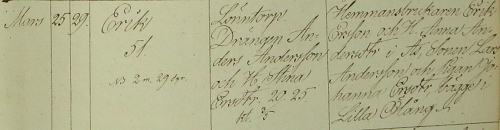 Mars 25 29. Erik
51
Lönntorp
Drängen An-
ders Andersson
och H. Stina
Ersdtr. 20. 25
kl. 3/5
Hemmansbrukaren Erik
Ersson och H. Anna An-
dersdtr i
Andersson och Pigan Jo-
hanna Ersdtr, bägge i
Lilla Mång.